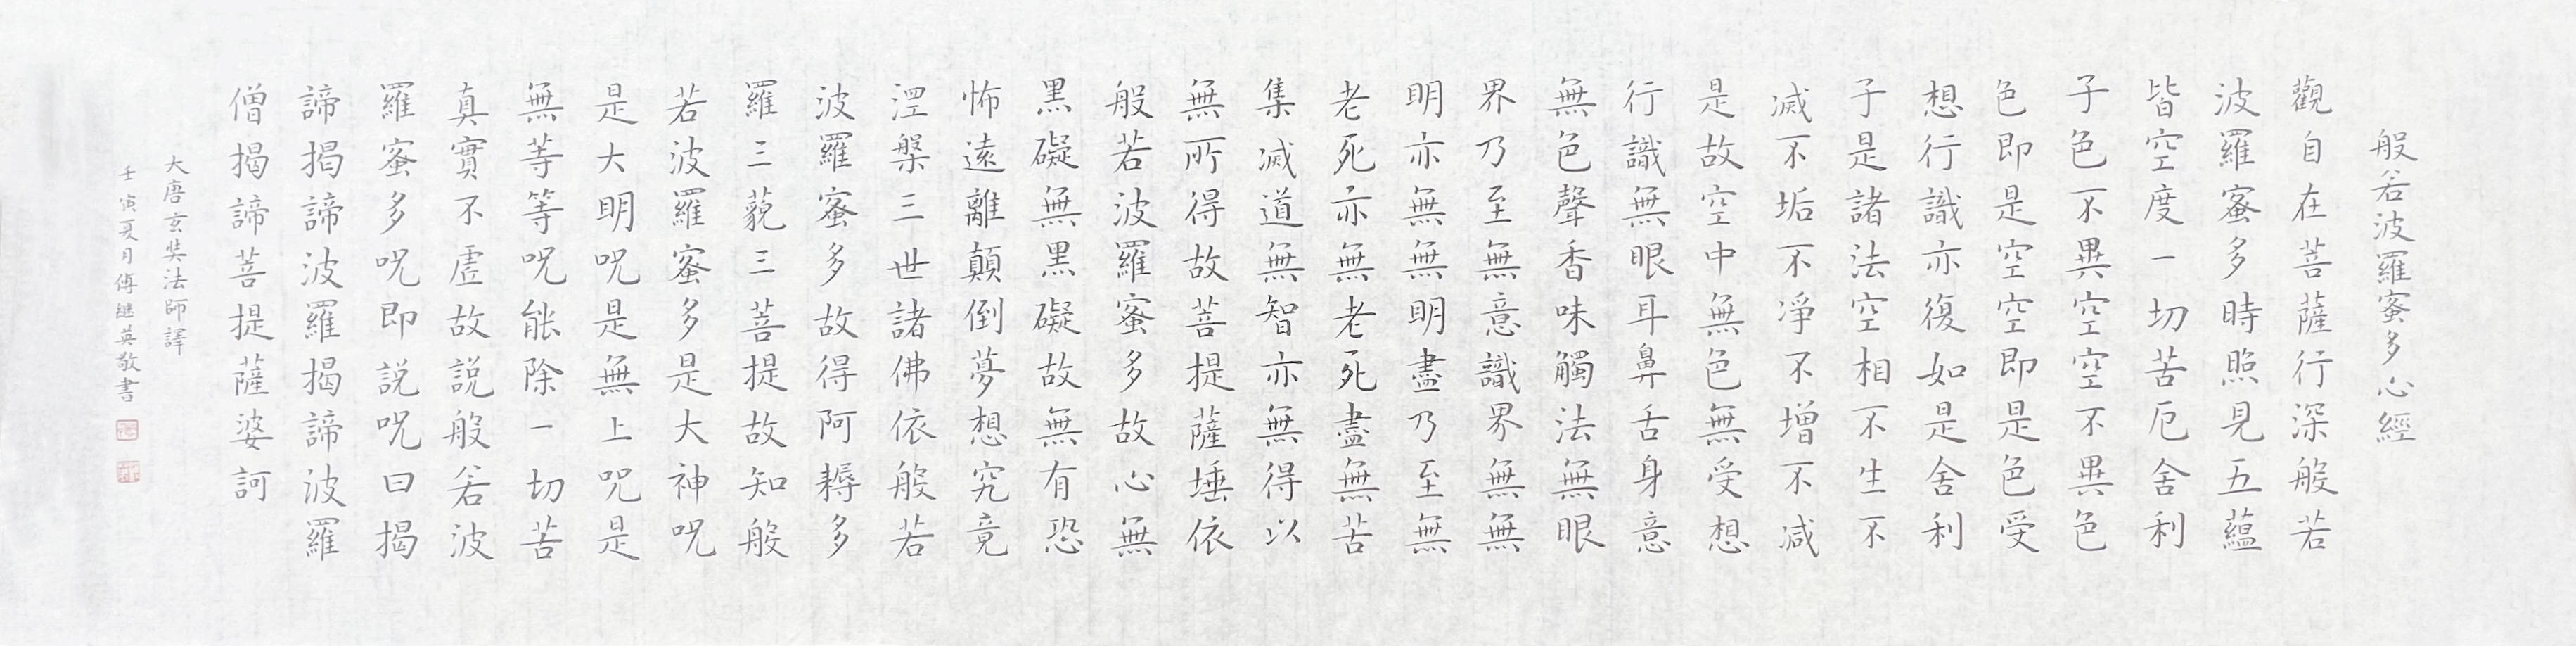 般若波羅蜜多心經
觀自在菩薩行深般若
波羅蜜多時照見五蘊
皆空度一切苦厄舍利
子色不異空空不異色
色即是空空即是色受
想行識亦復如是舍利
子是諸法空相不生不
滅不垢不淨不增不減
是故空中無色無受想
行識無眼耳鼻舌身意
無色聲香味觸法無眼
界乃至無意識界無無
明亦無無明盡乃至無
老死亦無老死盡無苦
集滅道無智亦無得以
無所得故菩提薩埵依
般若波羅蜜多故心無
罣礙無罣礙故無有恐
怖遠離顛倒夢想究竟
涅槃三世諸佛依般若
波羅蜜多故得阿耨多
羅三藐三菩提故知般
若波羅蜜多是大神呪
是大明呪是無上呪是
無等等呪能除一切苦
真實不虛故說般若波
羅蜜多呪即說呪曰揭
諦揭諦波羅揭諦波羅
僧揭諦菩提薩婆訶
大唐玄奘法師譯
壬寅夏月傅继英敬書